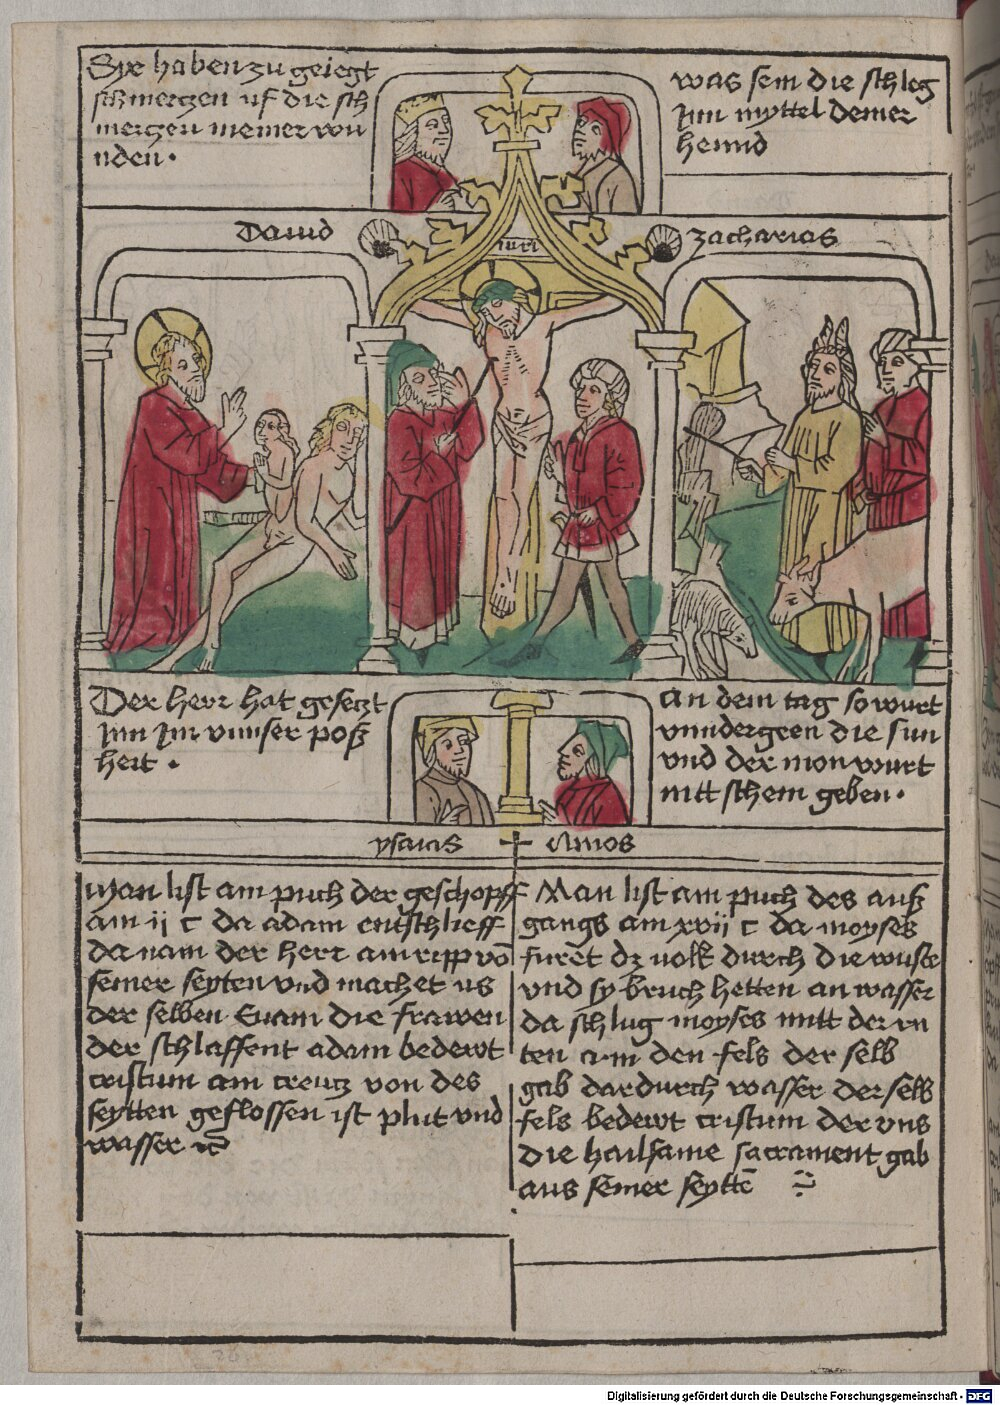 Sye haben zu geiegt
schmerczen uf die sch
merczen meiner wu
nden ·
was sein die schleg
Inn myttel deiner
hennd
Dauid
inri
Zacharias
Der herr hat gesetzt
Inn Im vnnser poß
heit ·
An dem tag so wurt
vnndergeen die sun
vnd der mon wurt
nitt schein geben ·
ysaias
Amos
Man list am puch der geschopff
am ij c da adam entschlieff
da nam der herr ain ripp vō
seiner seyten vnd machet us
der selben Euam die frawen
der schlaffent adam bedewt
cristum am creutz von des
seytten geflossen ist plut vnd
wasser
Man list am puch des auß
gangs am xvij c da moyses
furet dz volk durch die wuste
vnd sy bruch hetten an wasser
da schlug moyses mitt der ru
ten a·m den fels der selb
gab dardurch wasser der selb
fels bedewt cristum der vns
die hailsame sacrament gab
aus seiner seyttē
Digitalisierung gefördert durch die Deutsche Forschungsgemeinschaft - DFG